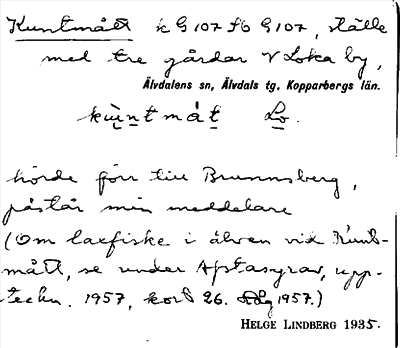 Kuntmått k G 107 fb G 107, ställe
med tre gårdar V Loka by,
Älvdalens sn, Älvdals tg. Kopparbergs län.
kùntmåt Lo.
hörde förr till Brunnsberg,
påstår min meddelare
(Om laxfiske i älven vid Kunt-
mått, se under Aftasgrav, upp-
teckn. 1957, kort 26. 1957.)
HELGE LINDBERG 1935.